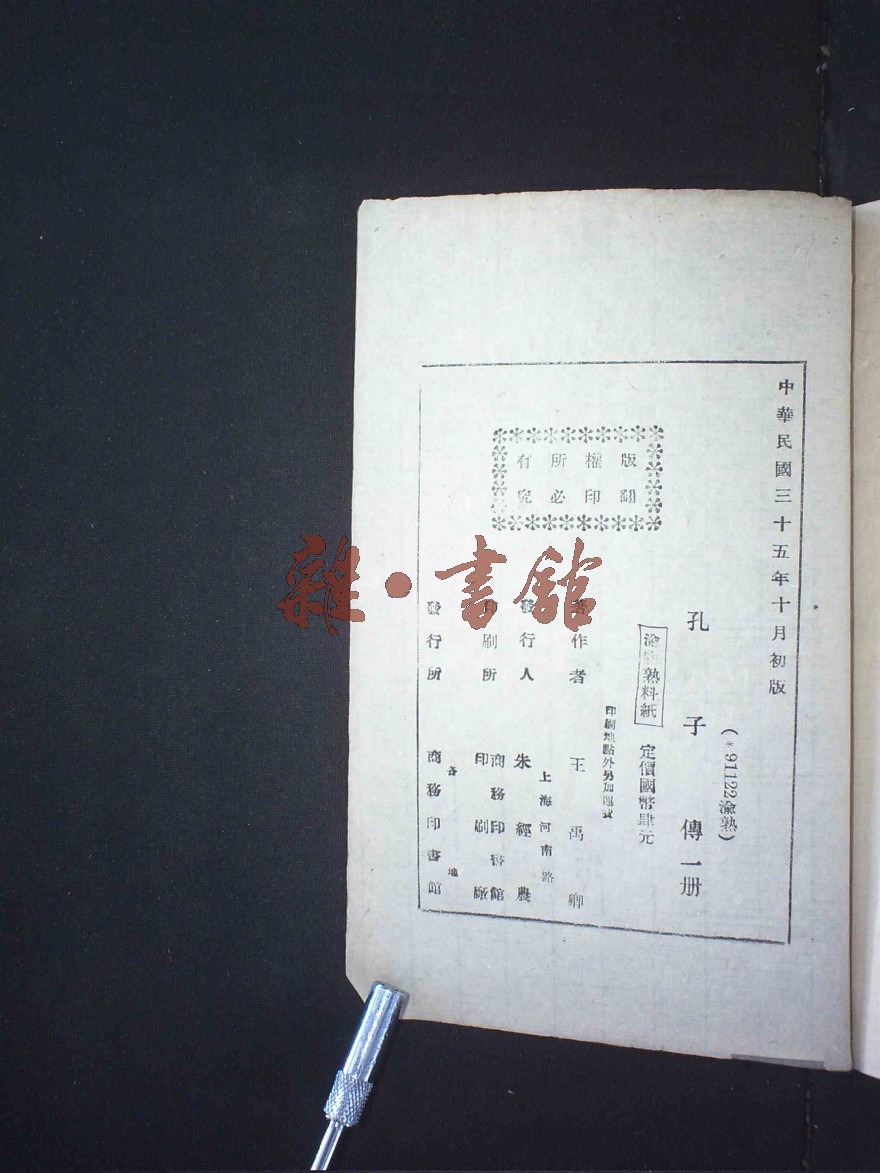 中華民國三十五年十月初版
(*91122渝熟)
孔子傳一册
渝 熟料紙 定價國幣肆元
印刷地點外另加運費
著作者 王禹卿
上海河南路
發行人 朱經農
印刷所 商務印書館
印刷廠
各地
發行所 商務印書館
版權所有
翻印必究
雜·書館